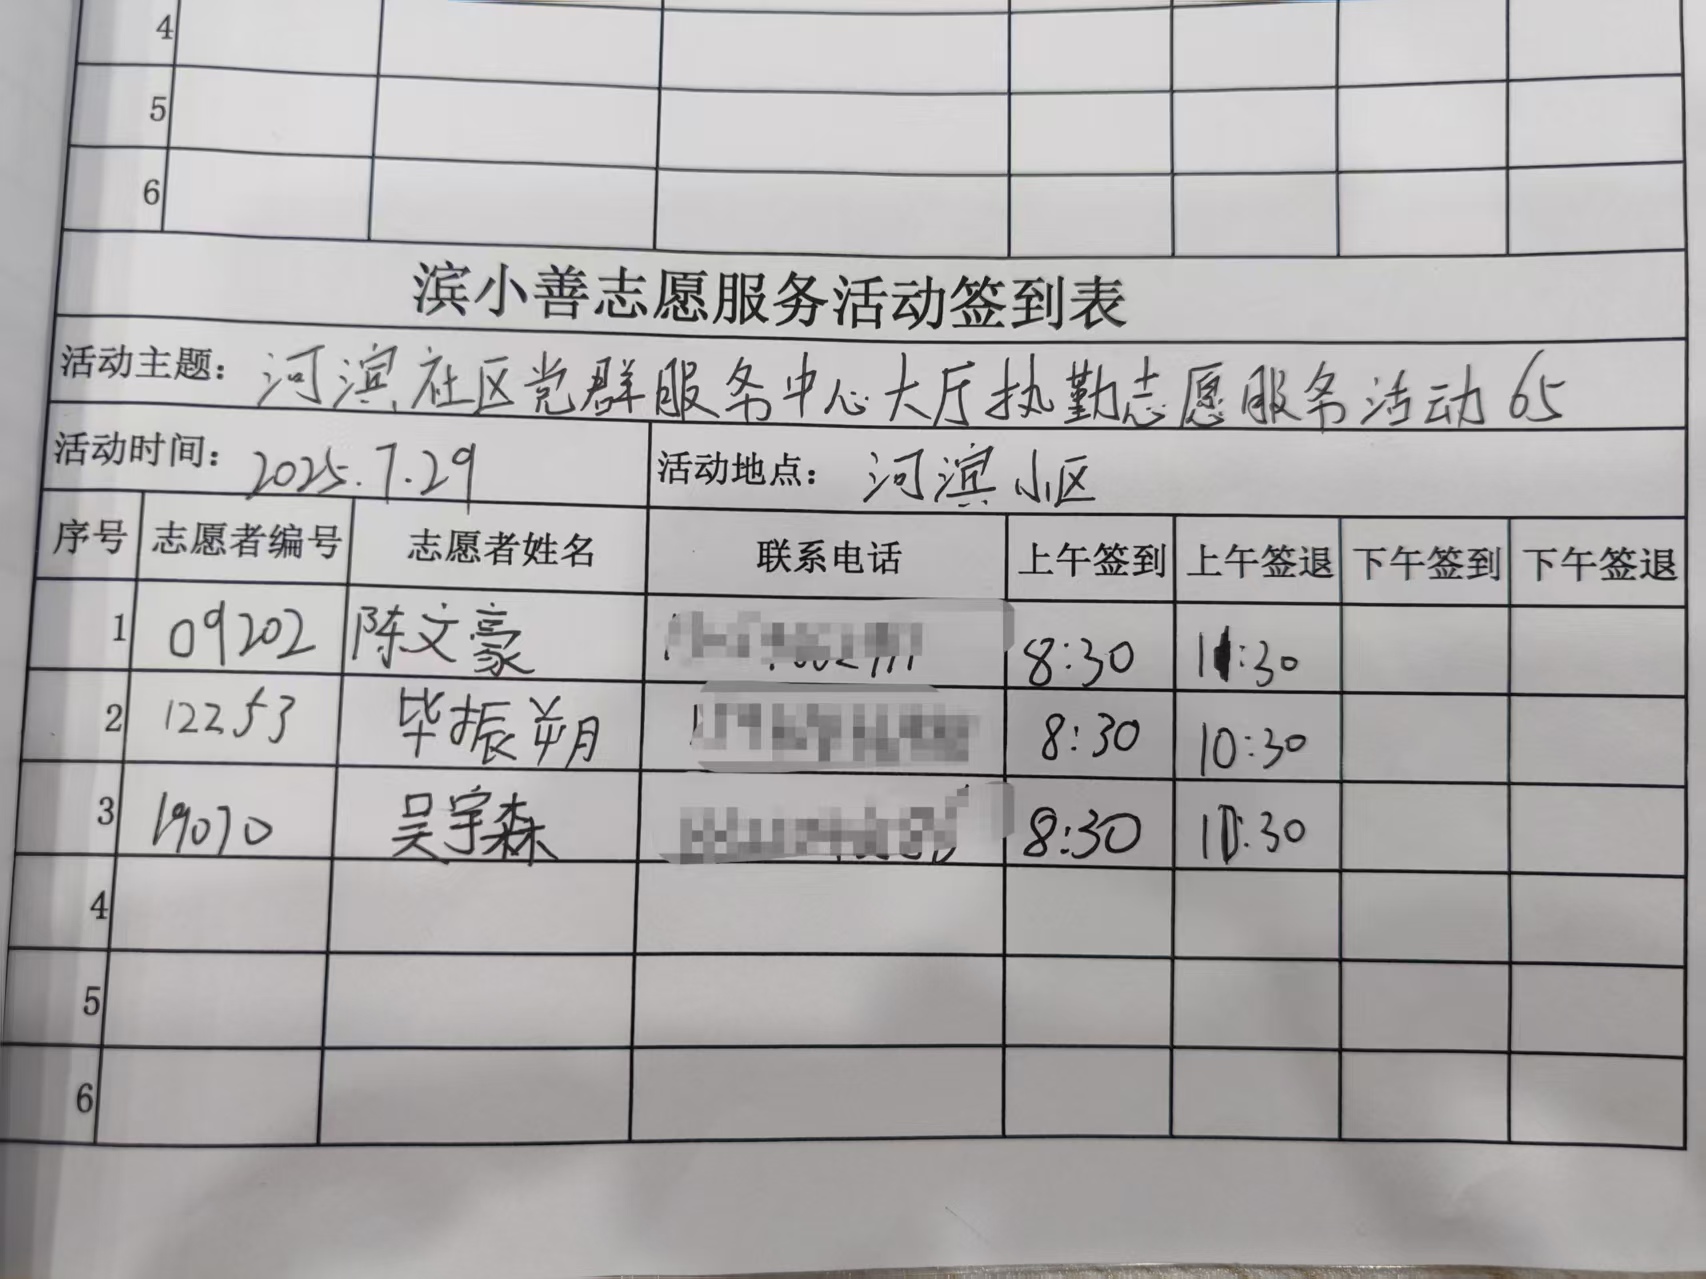 4
5
6
滨小善志愿服务活动签到表
活动主题: 河滨社区党群服务中心大厅执勤志愿服务活动65
活动时间: 2025.7.29 活动地点: 河滨小区
序号 志愿者编号 志愿者姓名 联系电话 上午签到 上午签退 下午签到 下午签退
1 09202 陈文豪 8:30 11:30
2 12253 毕振翔 8:30 10:30
3 19070 吴宇森 8:30 11:30
4
5
6